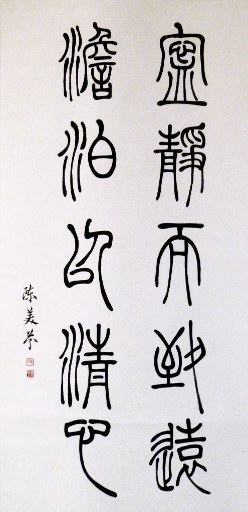 寧靜而致遠
澹泊以清心
陈美芬